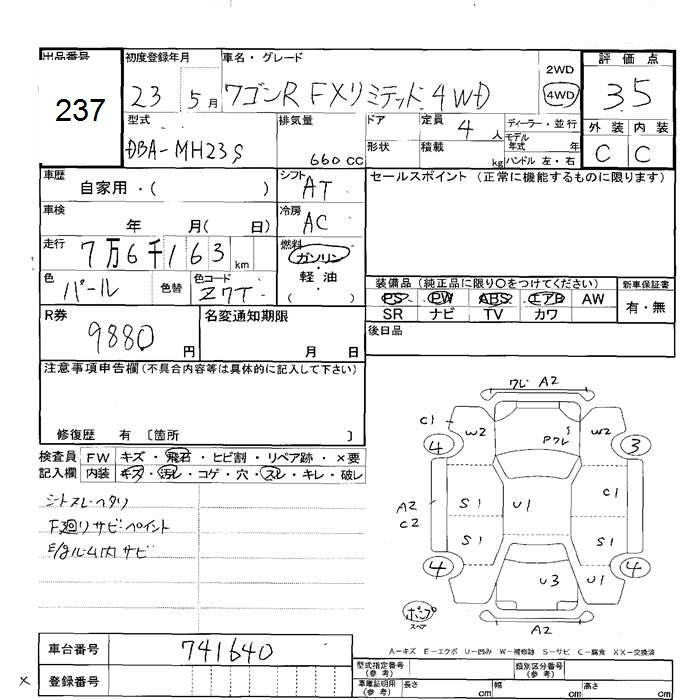 出品番号 初度登録年月 車名・グレード 評価点
237 23 5月 ワゴンR FXリミテッド 4WD 2WD 4WD 3.5
型式 排気量 ドア 定員 4人 ディーラー・並行 外装 内装
DBA-MH23S 660cc 形状 積載 kg モデル年式 年 ハンドル 左・右 C C
車歴 自家用・( ) シフト AT セールスポイント (正常に機能するものに限ります)
車検 年 月( 日) 冷房 AC
走行 7万6千163km 燃料 ガソリン・軽油 ( )
色 パール 色替 色コード Z7T
装備品(純正品に限り○をつけてください) 新車保証書
PS PW ABS エアB AW 有・無
SR ナビ TV カワ
R券 9880円 名変通知期限 月 日 後日品
注意事項申告欄(不具合内容等は具体的に記入して下さい)
修復歴 有 〔箇所 〕
検査員 FW キズ・飛石・ヒビ割・リペア跡・×要
記入欄 内装 キズ・汚レ・コゲ・穴・スレ・キレ・破レ
シートスレ・ヘタリ
F廻リサビ・ペイント
E/gルーム内サビ
ワレ A2
C1 W2 Pワレ W2
4 3
A2 C2 S1 U1 C1
S1 S1
4 U3 U1 4
ポンプ スペア
A2
A－キズ E－エクボ U－凹み W－補修跡 S－サビ C－腐食 XX－交換済
車台番号 741640
型式指定番号(参考) 類別区分番号(参考)
× 登録番号 車庫証明用(参考) 長さ cm 幅 cm 高さ cm